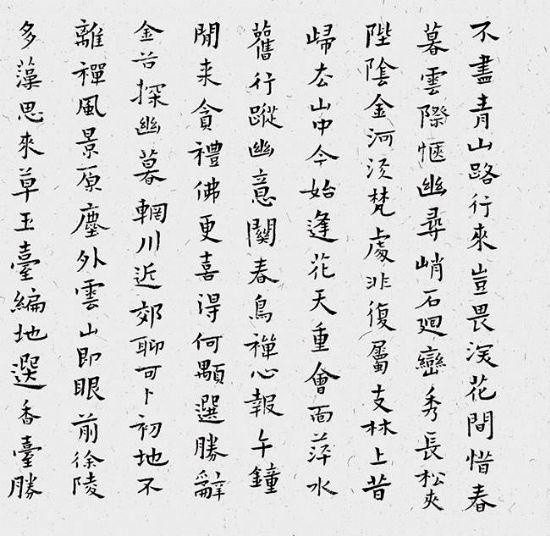 不盡青山路行來豈畏深花間惜春
暮雲際愜幽尋峭石廻巒秀長松夾
陛陰金河須梵處非復屬支林上昔
歸去山中今始逢花天重會面萍水
舊行蹤幽意關春鳥禪心報午鐘
閒来貪禮佛更喜得何顒選勝辭
金谷探幽慕輞川近郊聊可卜初地不
離禪風景原塵外雲山即眼前徐陵
多藻思來草玉臺編地選香臺勝